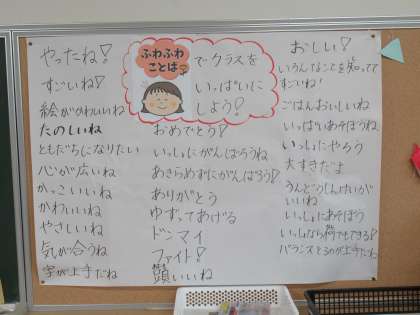 ふわふわ
ことば
でクラスを
いっぱいに
しよう!
やったね!
すごいね!
絵がかわいいね
たのしいね
ともだちになりたい
心が広いね
かっこいいね
かわいいね
やさしいね
気が合うね
字が上手だね
おめでとう!
いっしょにがんばろうね
あきらめずにがんばろう!
ありがとう
ゆずってあげる
ドンマイ
ファイト!
顔いいね
おしい!
いろんなことを知ってて
すごいね!
ごはんおいしいね
いっぱいあそぼうね
いっしょにやろう
大すきだよ
うんどうしんけいが
いいね
いっしょにあそぼう
いっしょなら何でもできる!
バランスとるのが上手だね